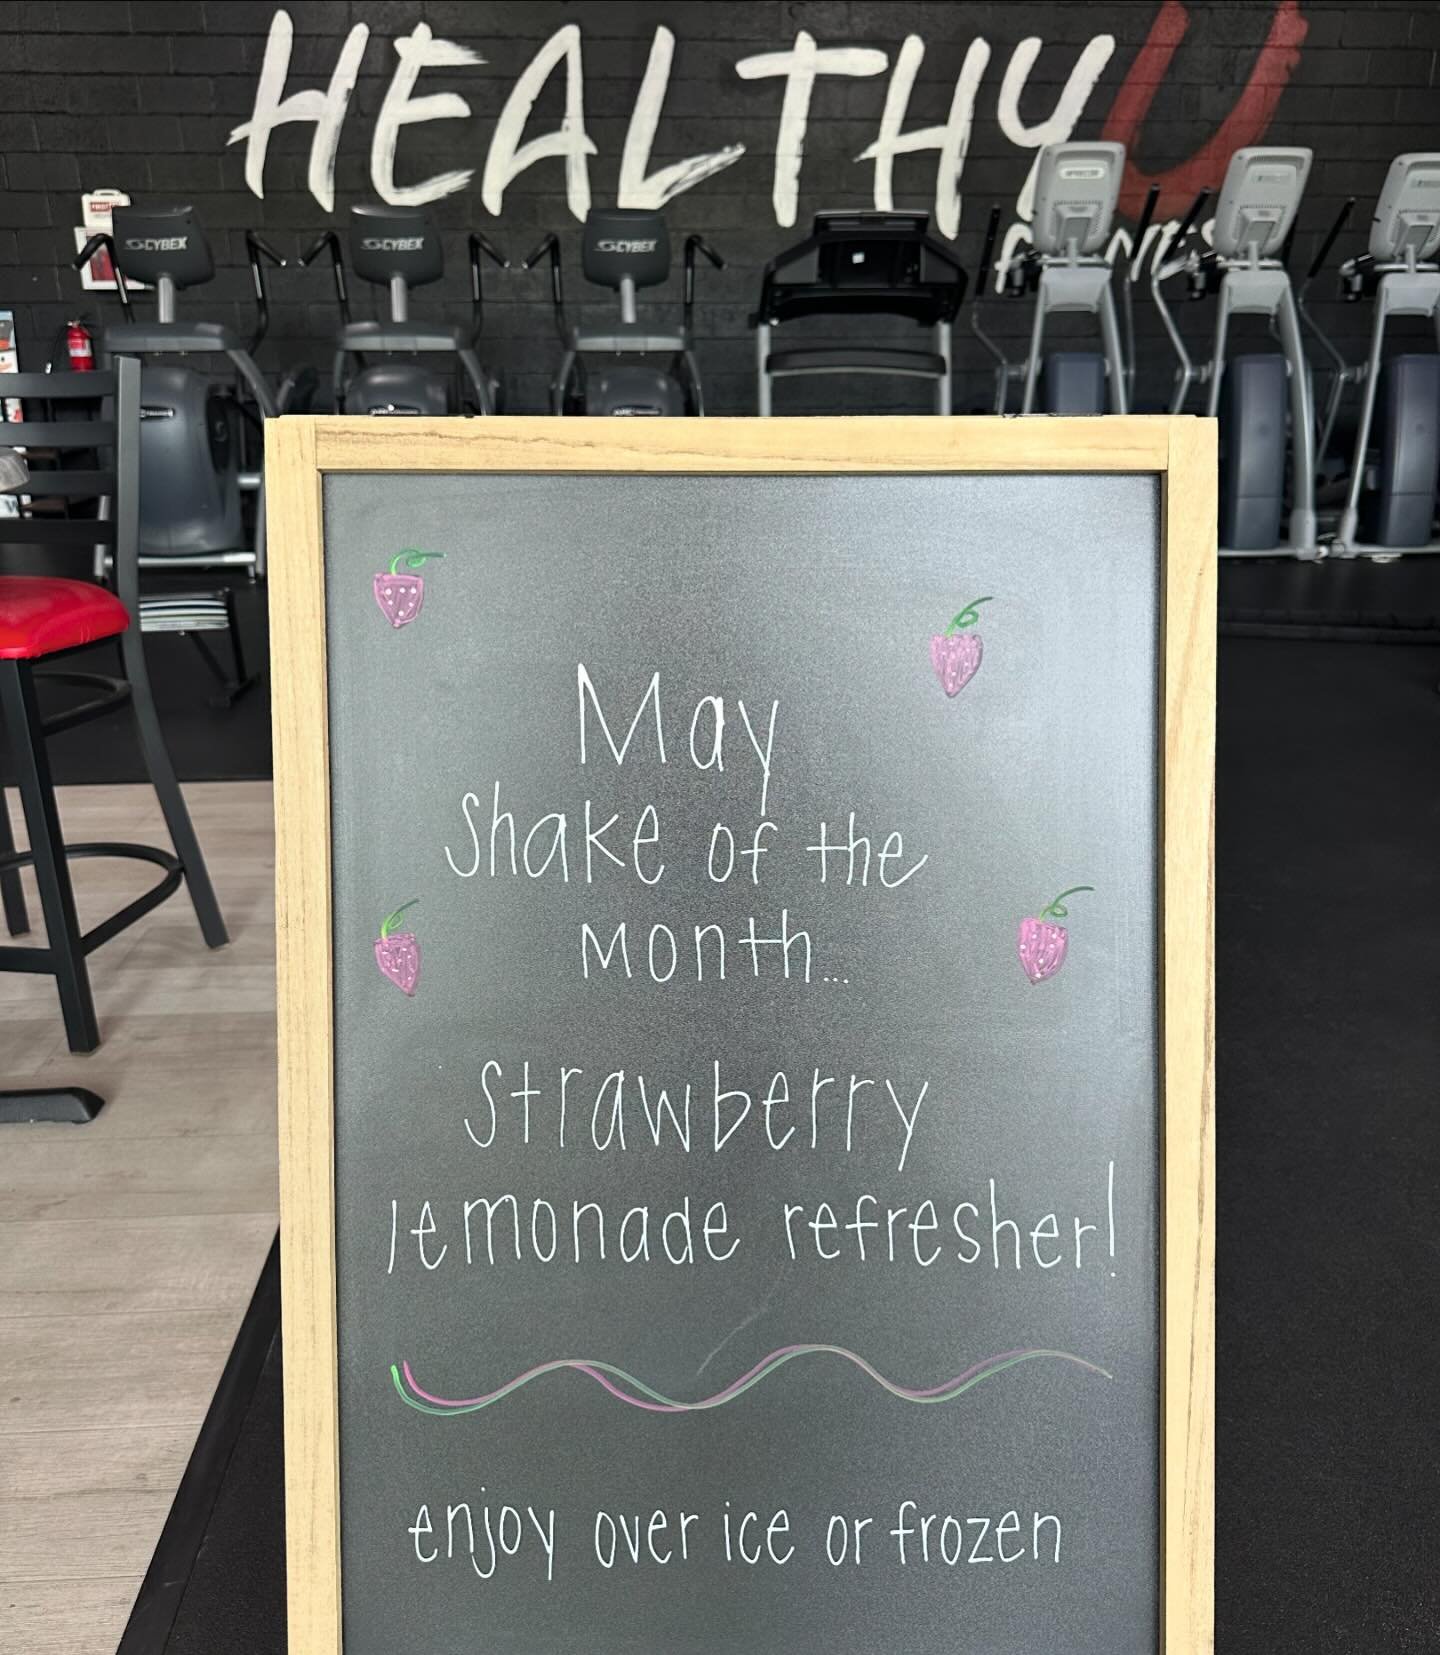 HEALTHYU
CYBEX
CYBEX
CYBEX
May
Shake of the
Month...
Strawberry
lemonade refresher!
enjoy over ice or frozen